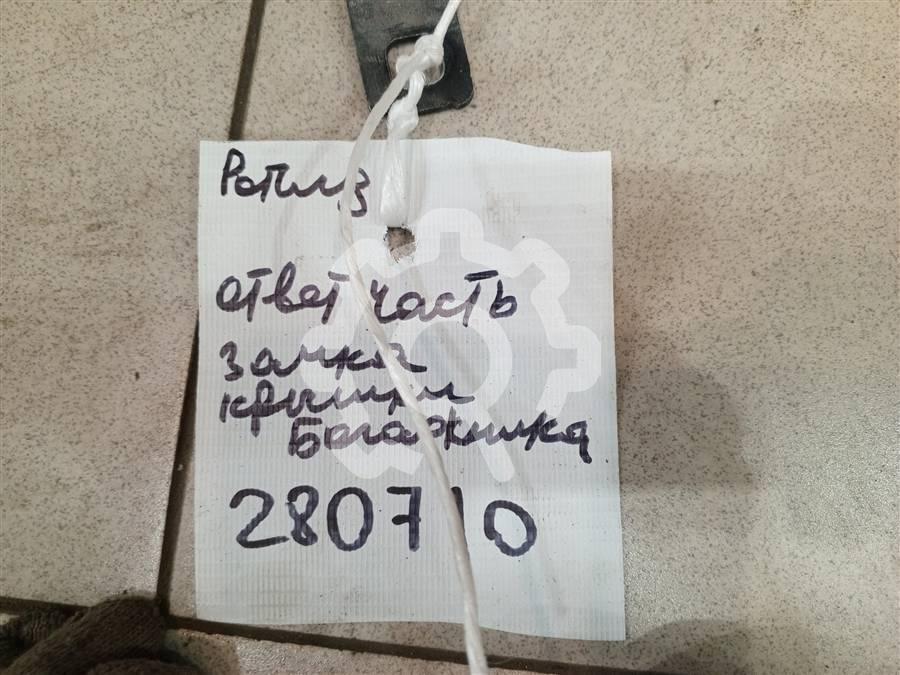 ответ часть
замка
крышки
Багажника
280710